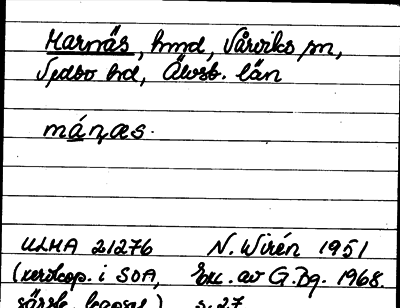 Harnäs, hmd, Vårviks sn,
Vedbo hd, Älvsb. län
mánas.
ULMA 21276 N. Wirén 1951
i SOA, Exc. av G.Bg. 1968.
särsk. s. 27